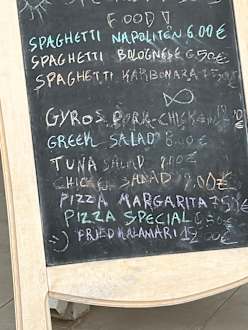 FOOD
SPAGHETTI NAPOLITEN 6.00€
SPAGHETTI BOLOGNESE 6.50€
SPAGHETTI KARBONARA 7.50€
GYROS PORK-CHICKEN
GREEK SALAD 8.00€
TUNA SALAD 9.00€
CHICKEN SALAD 9.00€
PIZZA MARGARITA 7.50€
PIZZA SPECIAL
FRIED KALAMARI 12.00€